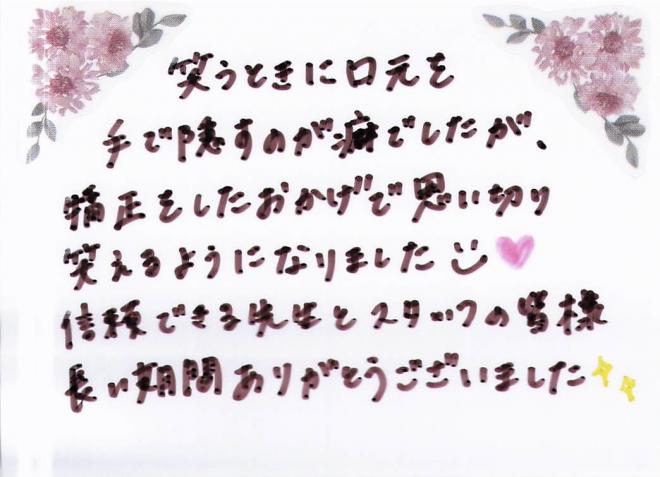 笑うときに口元を
手で隠すのが癖でしたが、
矯正をしたおかげで思い切り
笑えるようになりました
信頼できる先生とスタッフの皆様
長い期間ありがとうございました